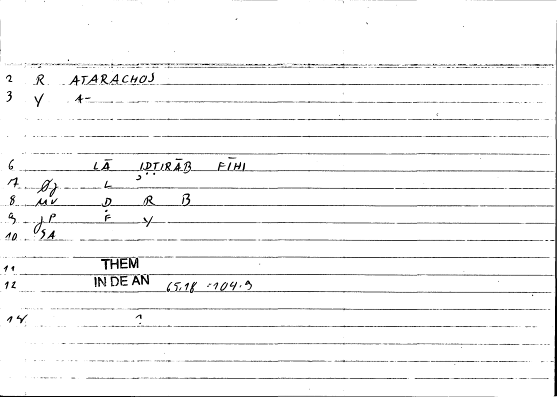 2 R ATARACHOS
3 Y A-
6 LĀ IḌṬIRĀB FĪHI
7 L
8 MV Ḍ R B
9 JP F Y
10 SA
11 THEM
12 IN DE AN 65.18 -104.9
14 1